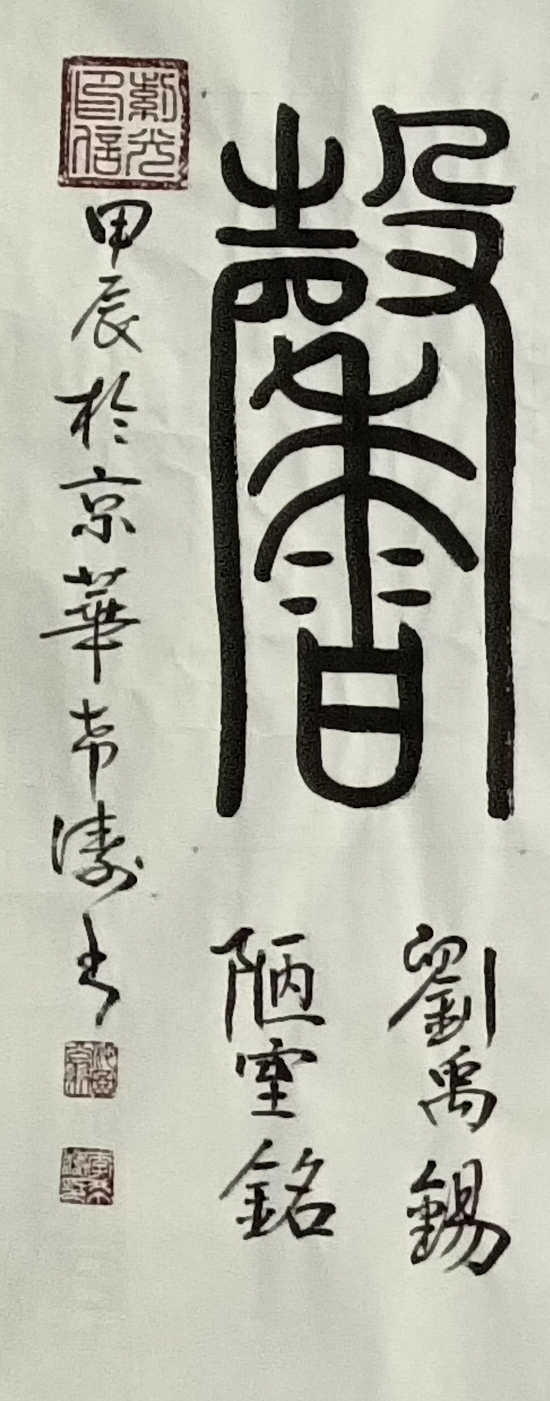 馨
劉禹錫
陋室銘
甲辰於京華濤书